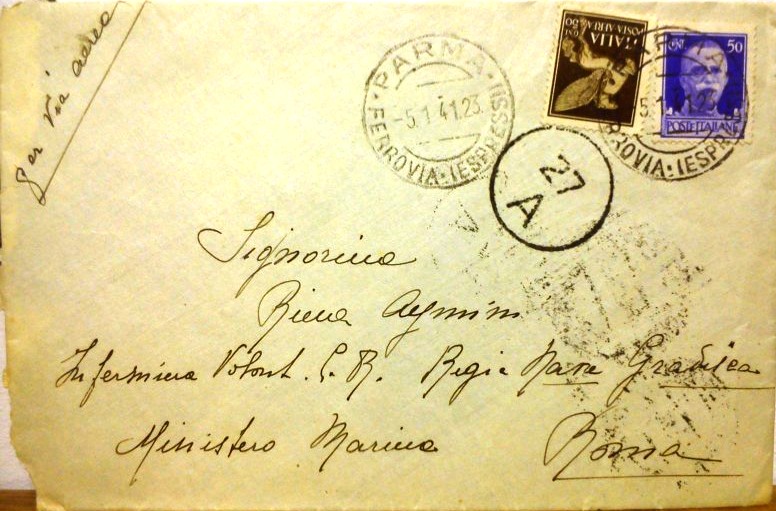 per via aerea
PARMA
FERROVIA·(ESPRESSI)
-5.1.41.23
ITALIA
POSTA AEREA
50
CENT. 50
POSTE ITALIANE
PARMA
5.1.41.23
27
A
Signorina
Aymini
Infermiera Volont. C. R. Regia Nave Gradisca
Ministero Marina Roma